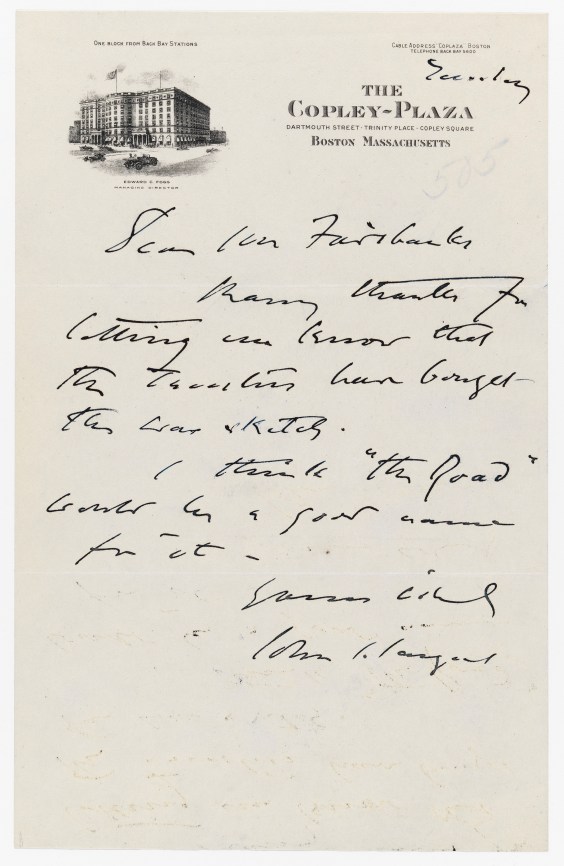 ONE BLOCK FROM BACK BAY STATIONS
CABLE ADDRESS COPLAZA BOSTON
TELEPHONE BACK BAY 5600
THE
COPLEY-PLAZA
DARTMOUTH STREET · TRINITY PLACE · COPLEY SQUARE
BOSTON MASSACHUSETTS
EDWARD C. FOGG
MANAGING DIRECTOR
505
Dear Mr Fairbanks
Many thanks for
letting me know that
the Trustees have bought
the war sketch.
I think "the Road"
would be a good name
for it -
Yours
John S. Sargent